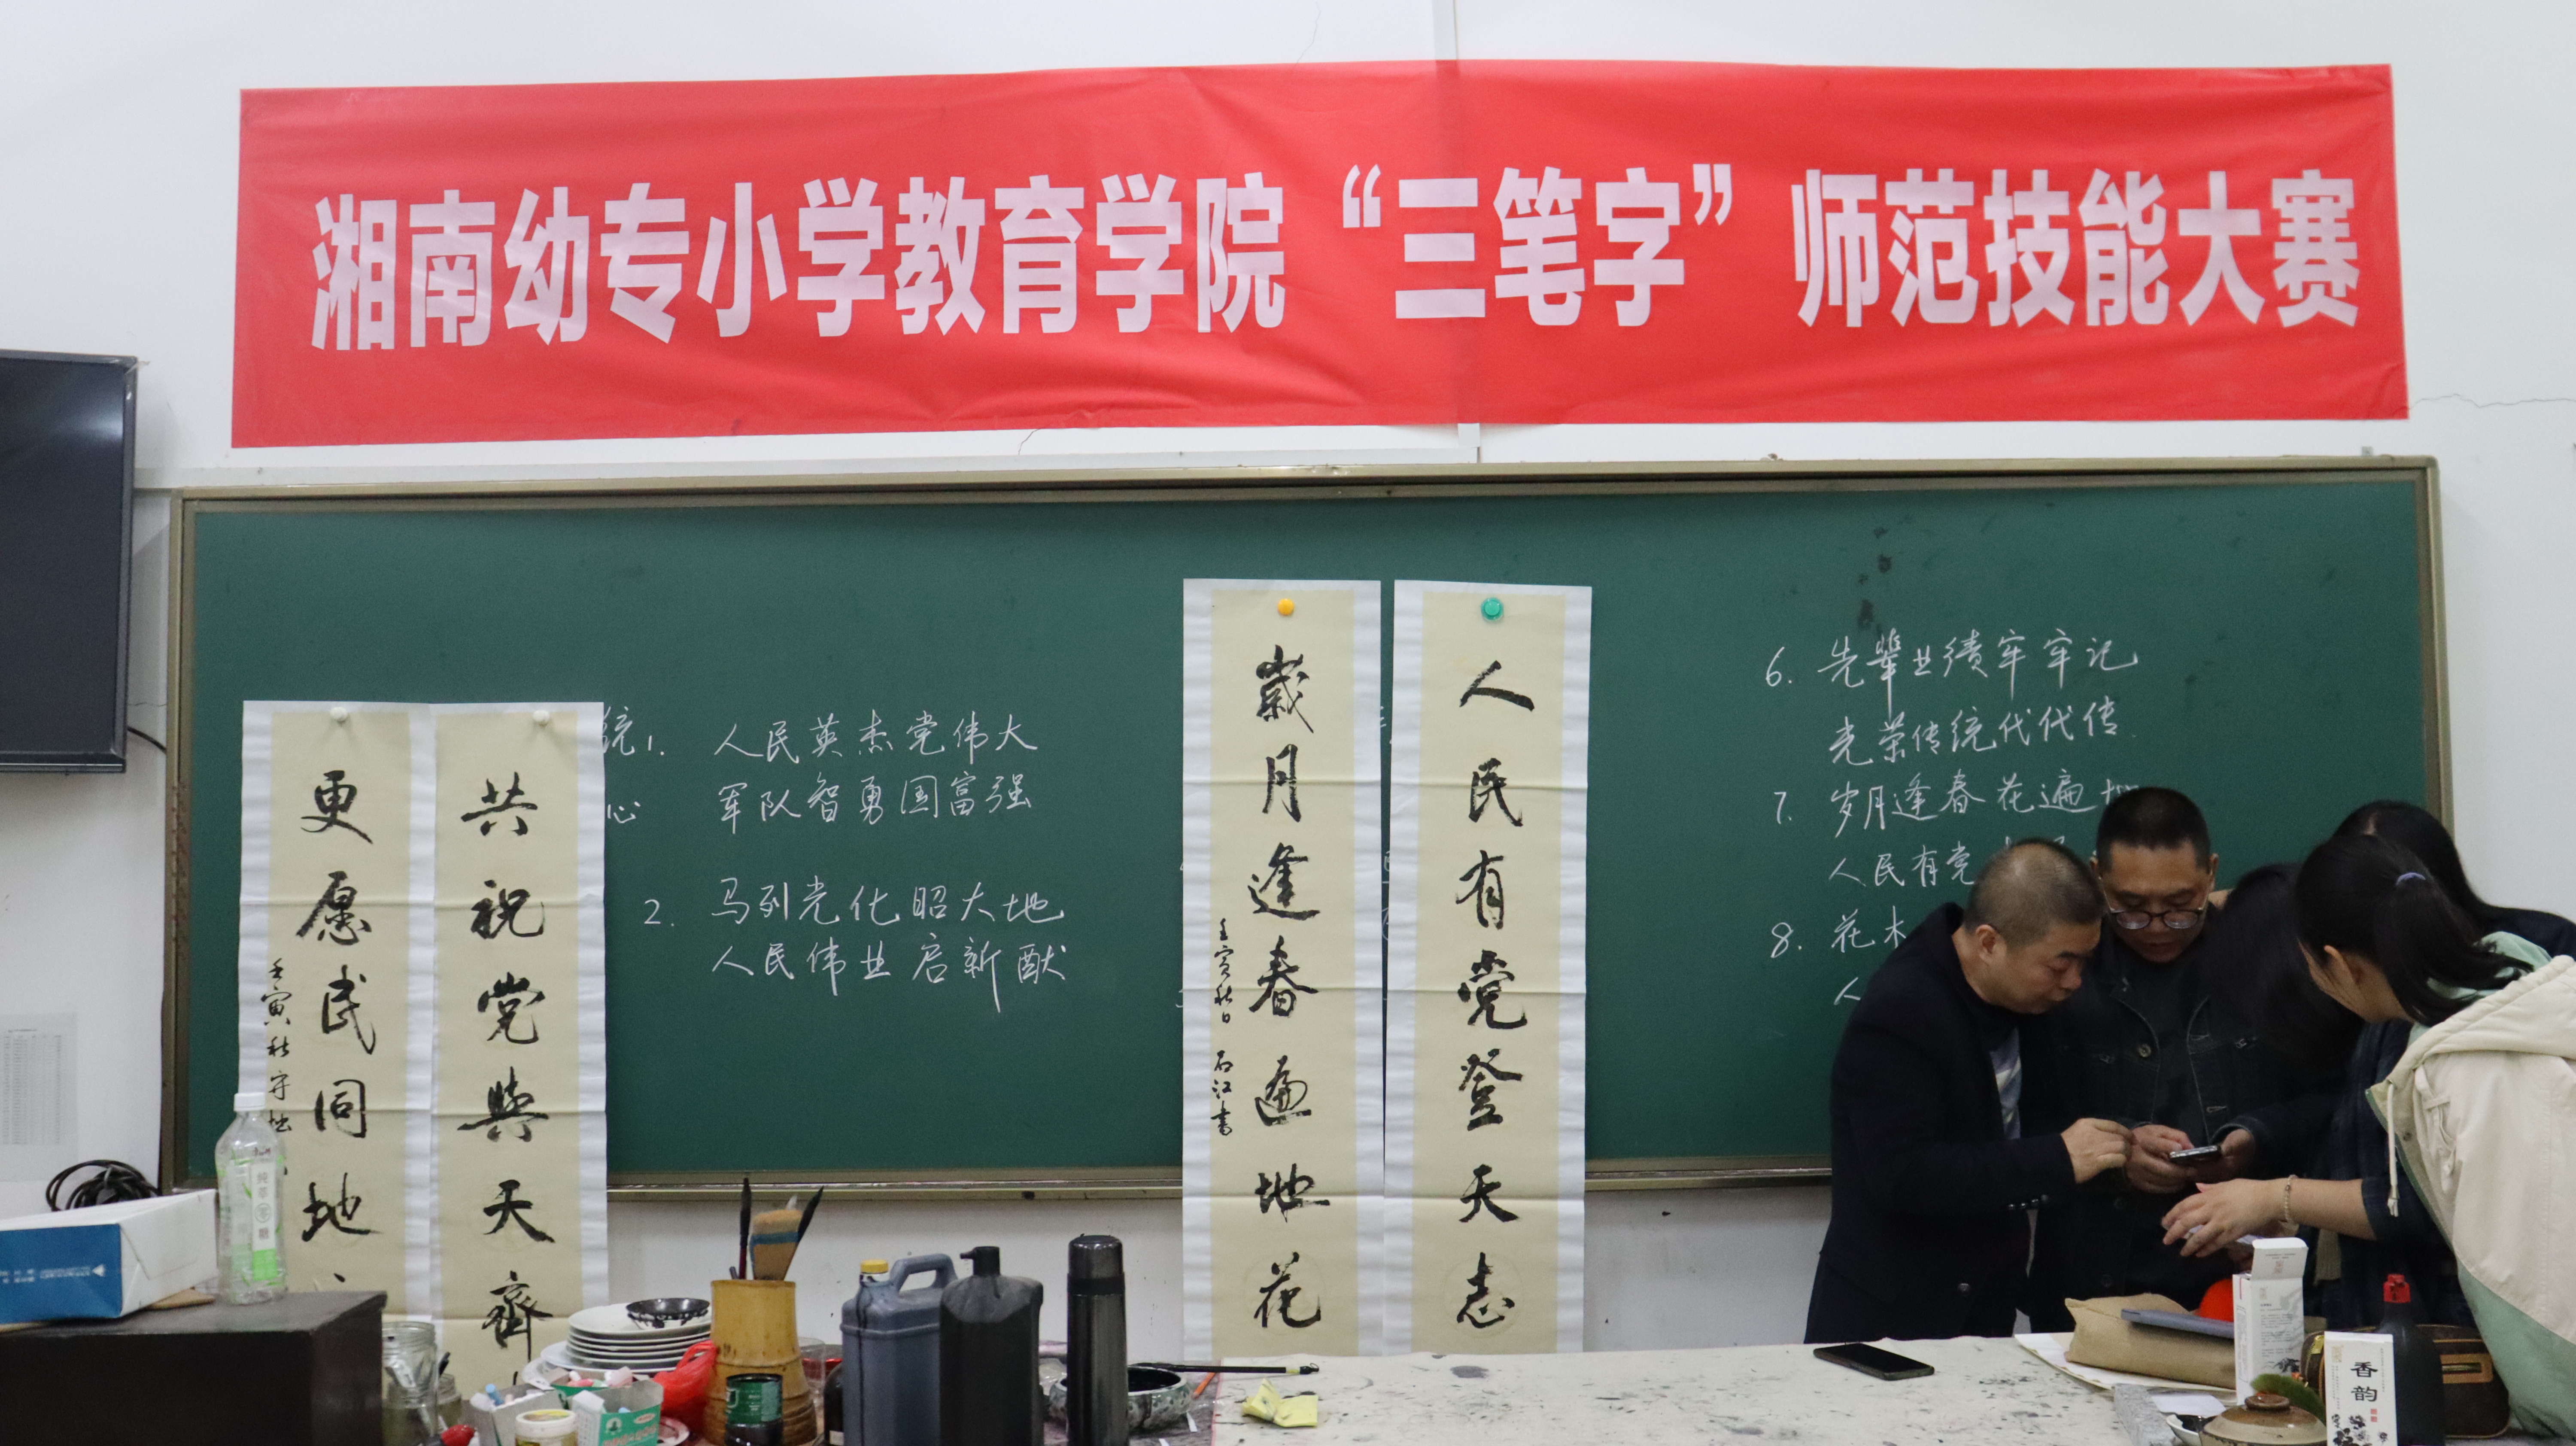 湘南幼专小学教育学院“三笔字”师范技能大赛
人民有党登天志
歲月逢春遍地花
壬寅秋日 石江书
共祝党與天齊
更愿民同地
壬寅秋 守拙
统
心
1. 人民英杰党伟大
军队智勇国富强
2. 马列光化昭大地
人民伟业启新猷
6. 先辈业绩牢牢记
光荣传统代代传
7. 岁月逢春花遍地
人民有党
8. 花木
人
香韵